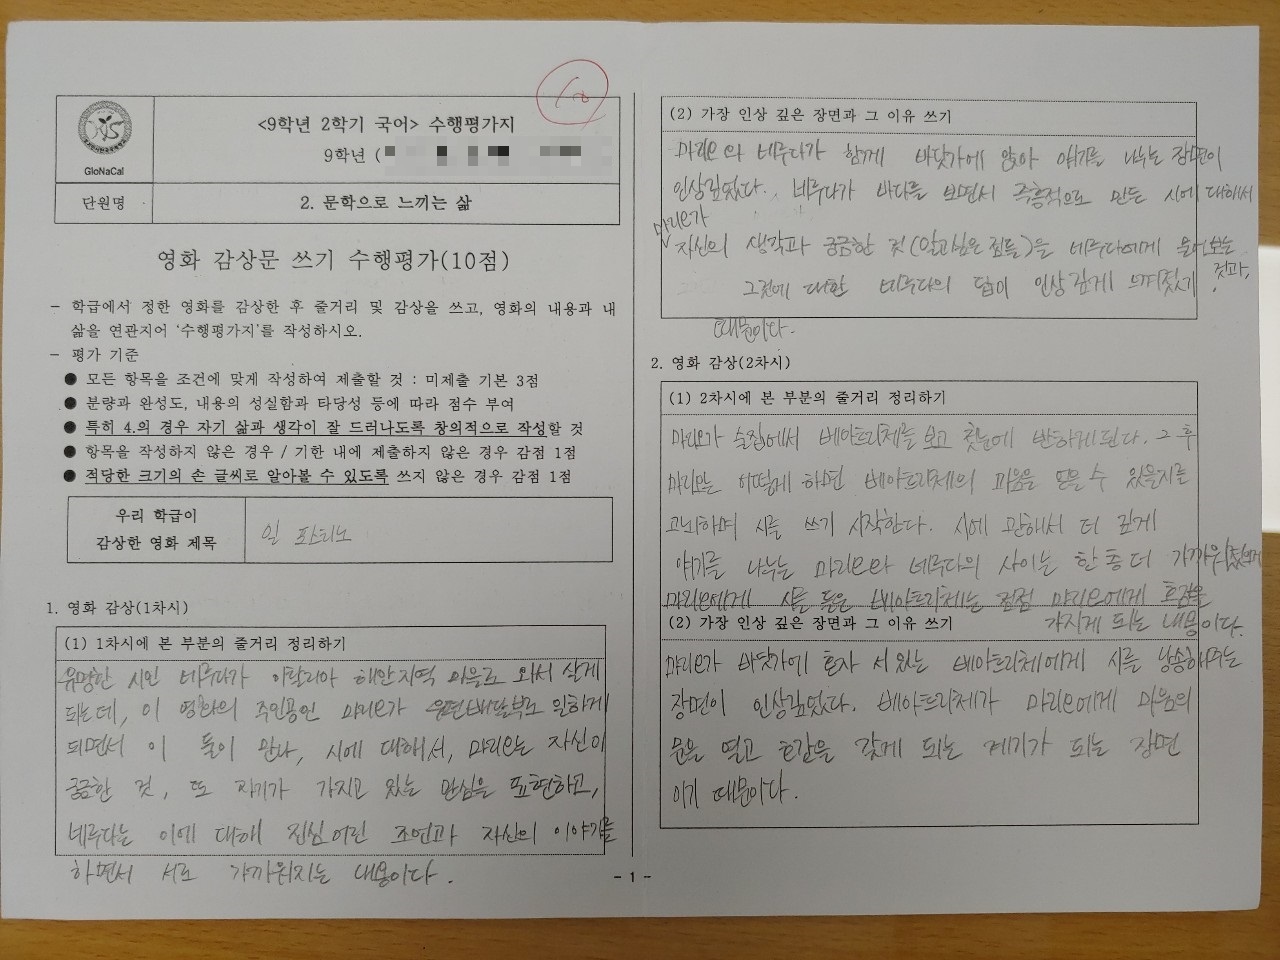 10
GloNaCal
<9학년 2학기 국어> 수행평가지
9학년 (
단원명
2. 문학으로 느끼는 삶
영화 감상문 쓰기 수행평가(10점)
- 학급에서 정한 영화를 감상한 후 줄거리 및 감상을 쓰고, 영화의 내용과 내
삶을 연관지어 '수행평가지'를 작성하시오.
- 평가 기준
● 모든 항목을 조건에 맞게 작성하여 제출할 것 : 미제출 기본 3점
● 분량과 완성도, 내용의 성실함과 타당성 등에 따라 점수 부여
● 특히 4.의 경우 자기 삶과 생각이 잘 드러나도록 창의적으로 작성할 것
● 항목을 작성하지 않은 경우 / 기한 내에 제출하지 않은 경우 감점 1점
● 적당한 크기의 손 글씨로 알아볼 수 있도록 쓰지 않은 경우 감점 1점
우리 학급이
감상한 영화 제목
일 포스티노
1. 영화 감상(1차시)
(1) 1차시에 본 부분의 줄거리 정리하기
유명한 시인 네루다가 이탈리아 해안지역 마을로 와서 살게
되는데, 이 영화의 주인공인 마리오가 우편배달부로 일하게
되면서 이 둘이 만나, 시에 대해서, 마리오는 자신이
궁금한 것, 또 자기가 가지고 있는 관심을 표현하고,
네루다는 이에 대해 진심 어린 조언과 자신의 이야기를
하면서 서로 가까워지는 내용이다.
(2) 가장 인상 깊은 장면과 그 이유 쓰기
마리오와 네루다가 함께 바닷가에 앉아 얘기를 나누는 장면이
인상깊었다. 네루다가 바다를 보면서 즉흥적으로 만든 시에 대해서
마리오가
자신의 생각과 궁금한 것(알고싶은 점들)을 네루다에게 물어보는
것과,
그것에 대한 네루다의 답이 인상 깊게 느껴졌기
때문이다.
2. 영화 감상(2차시)
(1) 2차시에 본 부분의 줄거리 정리하기
마리오가 술집에서 베아트리체를 보고 첫눈에 반하게된다. 그 후
마리오는 어떻게 하면 베아트리체의 마음을 얻을 수 있을지를
고뇌하며 시를 쓰기 시작한다. 시에 관해서 더 깊게
얘기를 나누는 마리오와 네루다의 사이는 한층 더
마리오에게 시를 들은 베아트리체는 점점 마리오에게 호감을
가지게 되는 내용이다.
(2) 가장 인상 깊은 장면과 그 이유 쓰기
마리오가 바닷가에 혼자 서 있는 베아트리체에게 시를 낭송해주는
장면이 인상깊었다. 베아트리체가 마리오에게 마음의
문을 열고 호감을 갖게 되는 계기가 되는 장면
이기 때문이다.
- 1 -